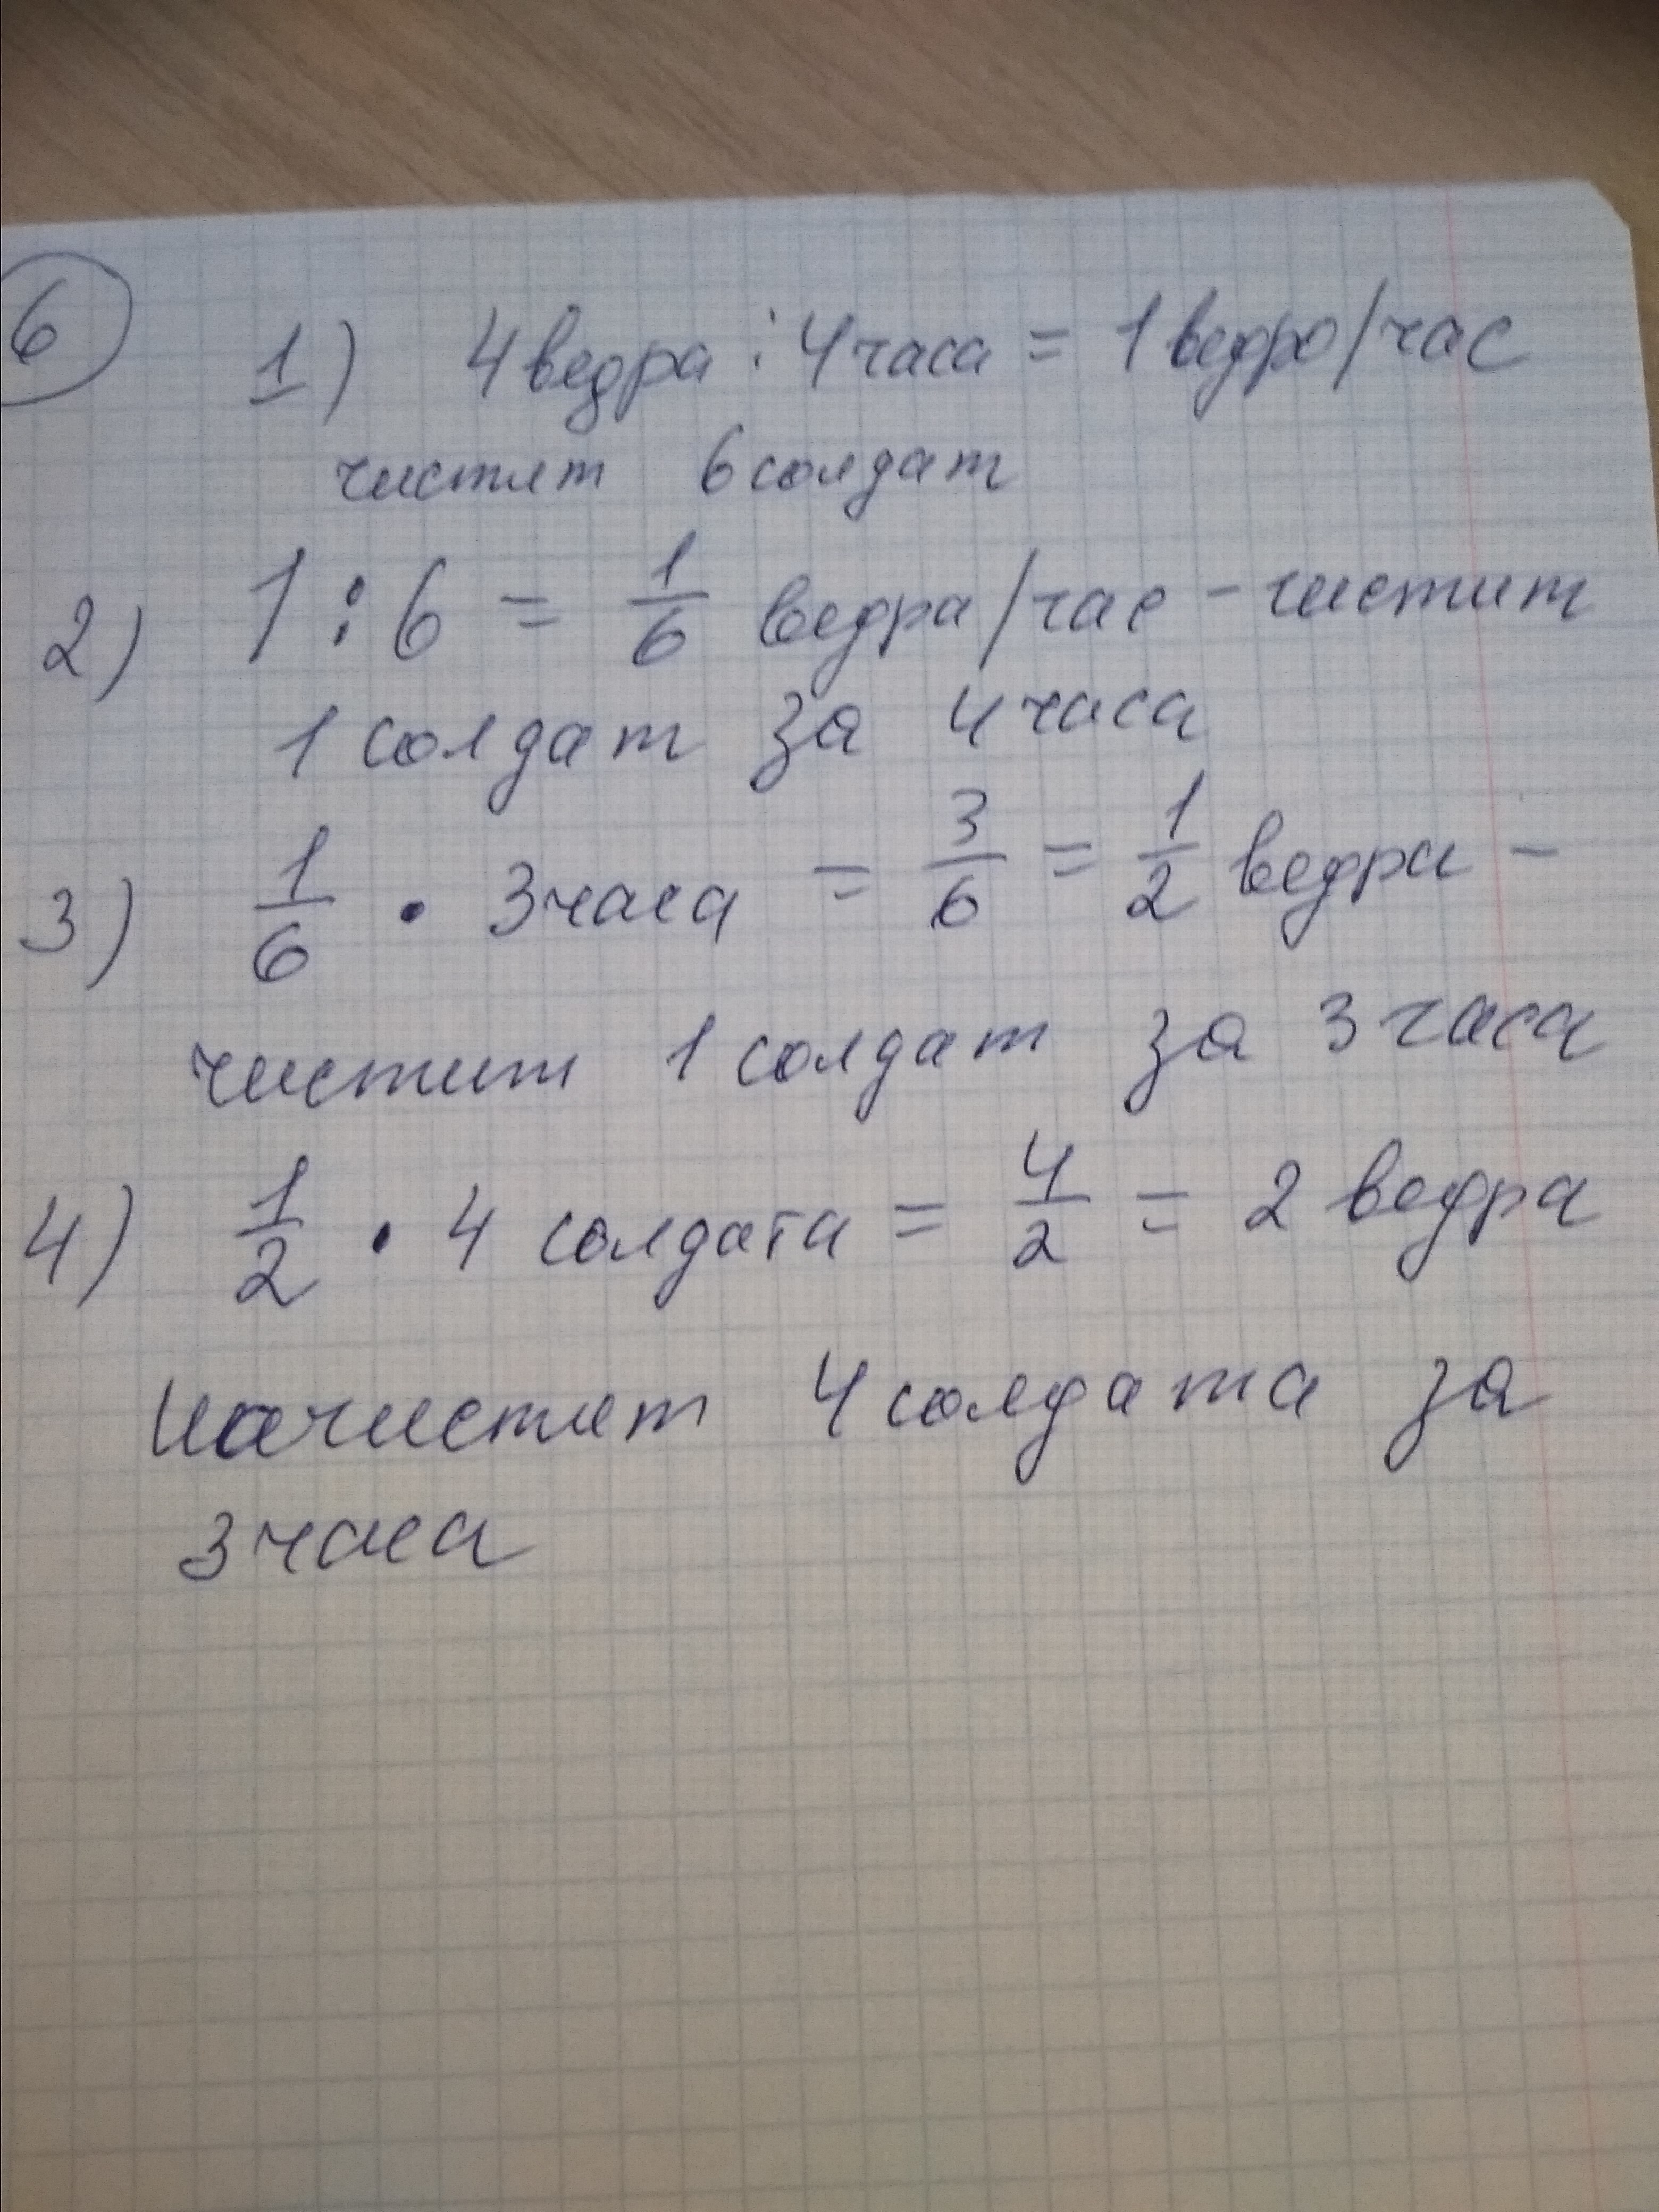 6
1) 4 ведра : 4 часа = 1 ведро/час
чистят 6 солдат
2) 1 : 6 = 1/6 ведра/час - чистит
1 солдат за 4 часа
3) 1/6 · 3 часа = 3/6 = 1/2 ведра -
чистит 1 солдат за 3 часа
4) 1/2 · 4 солдата = 4/2 = 2 ведра
начистят 4 солдата за
3 часа